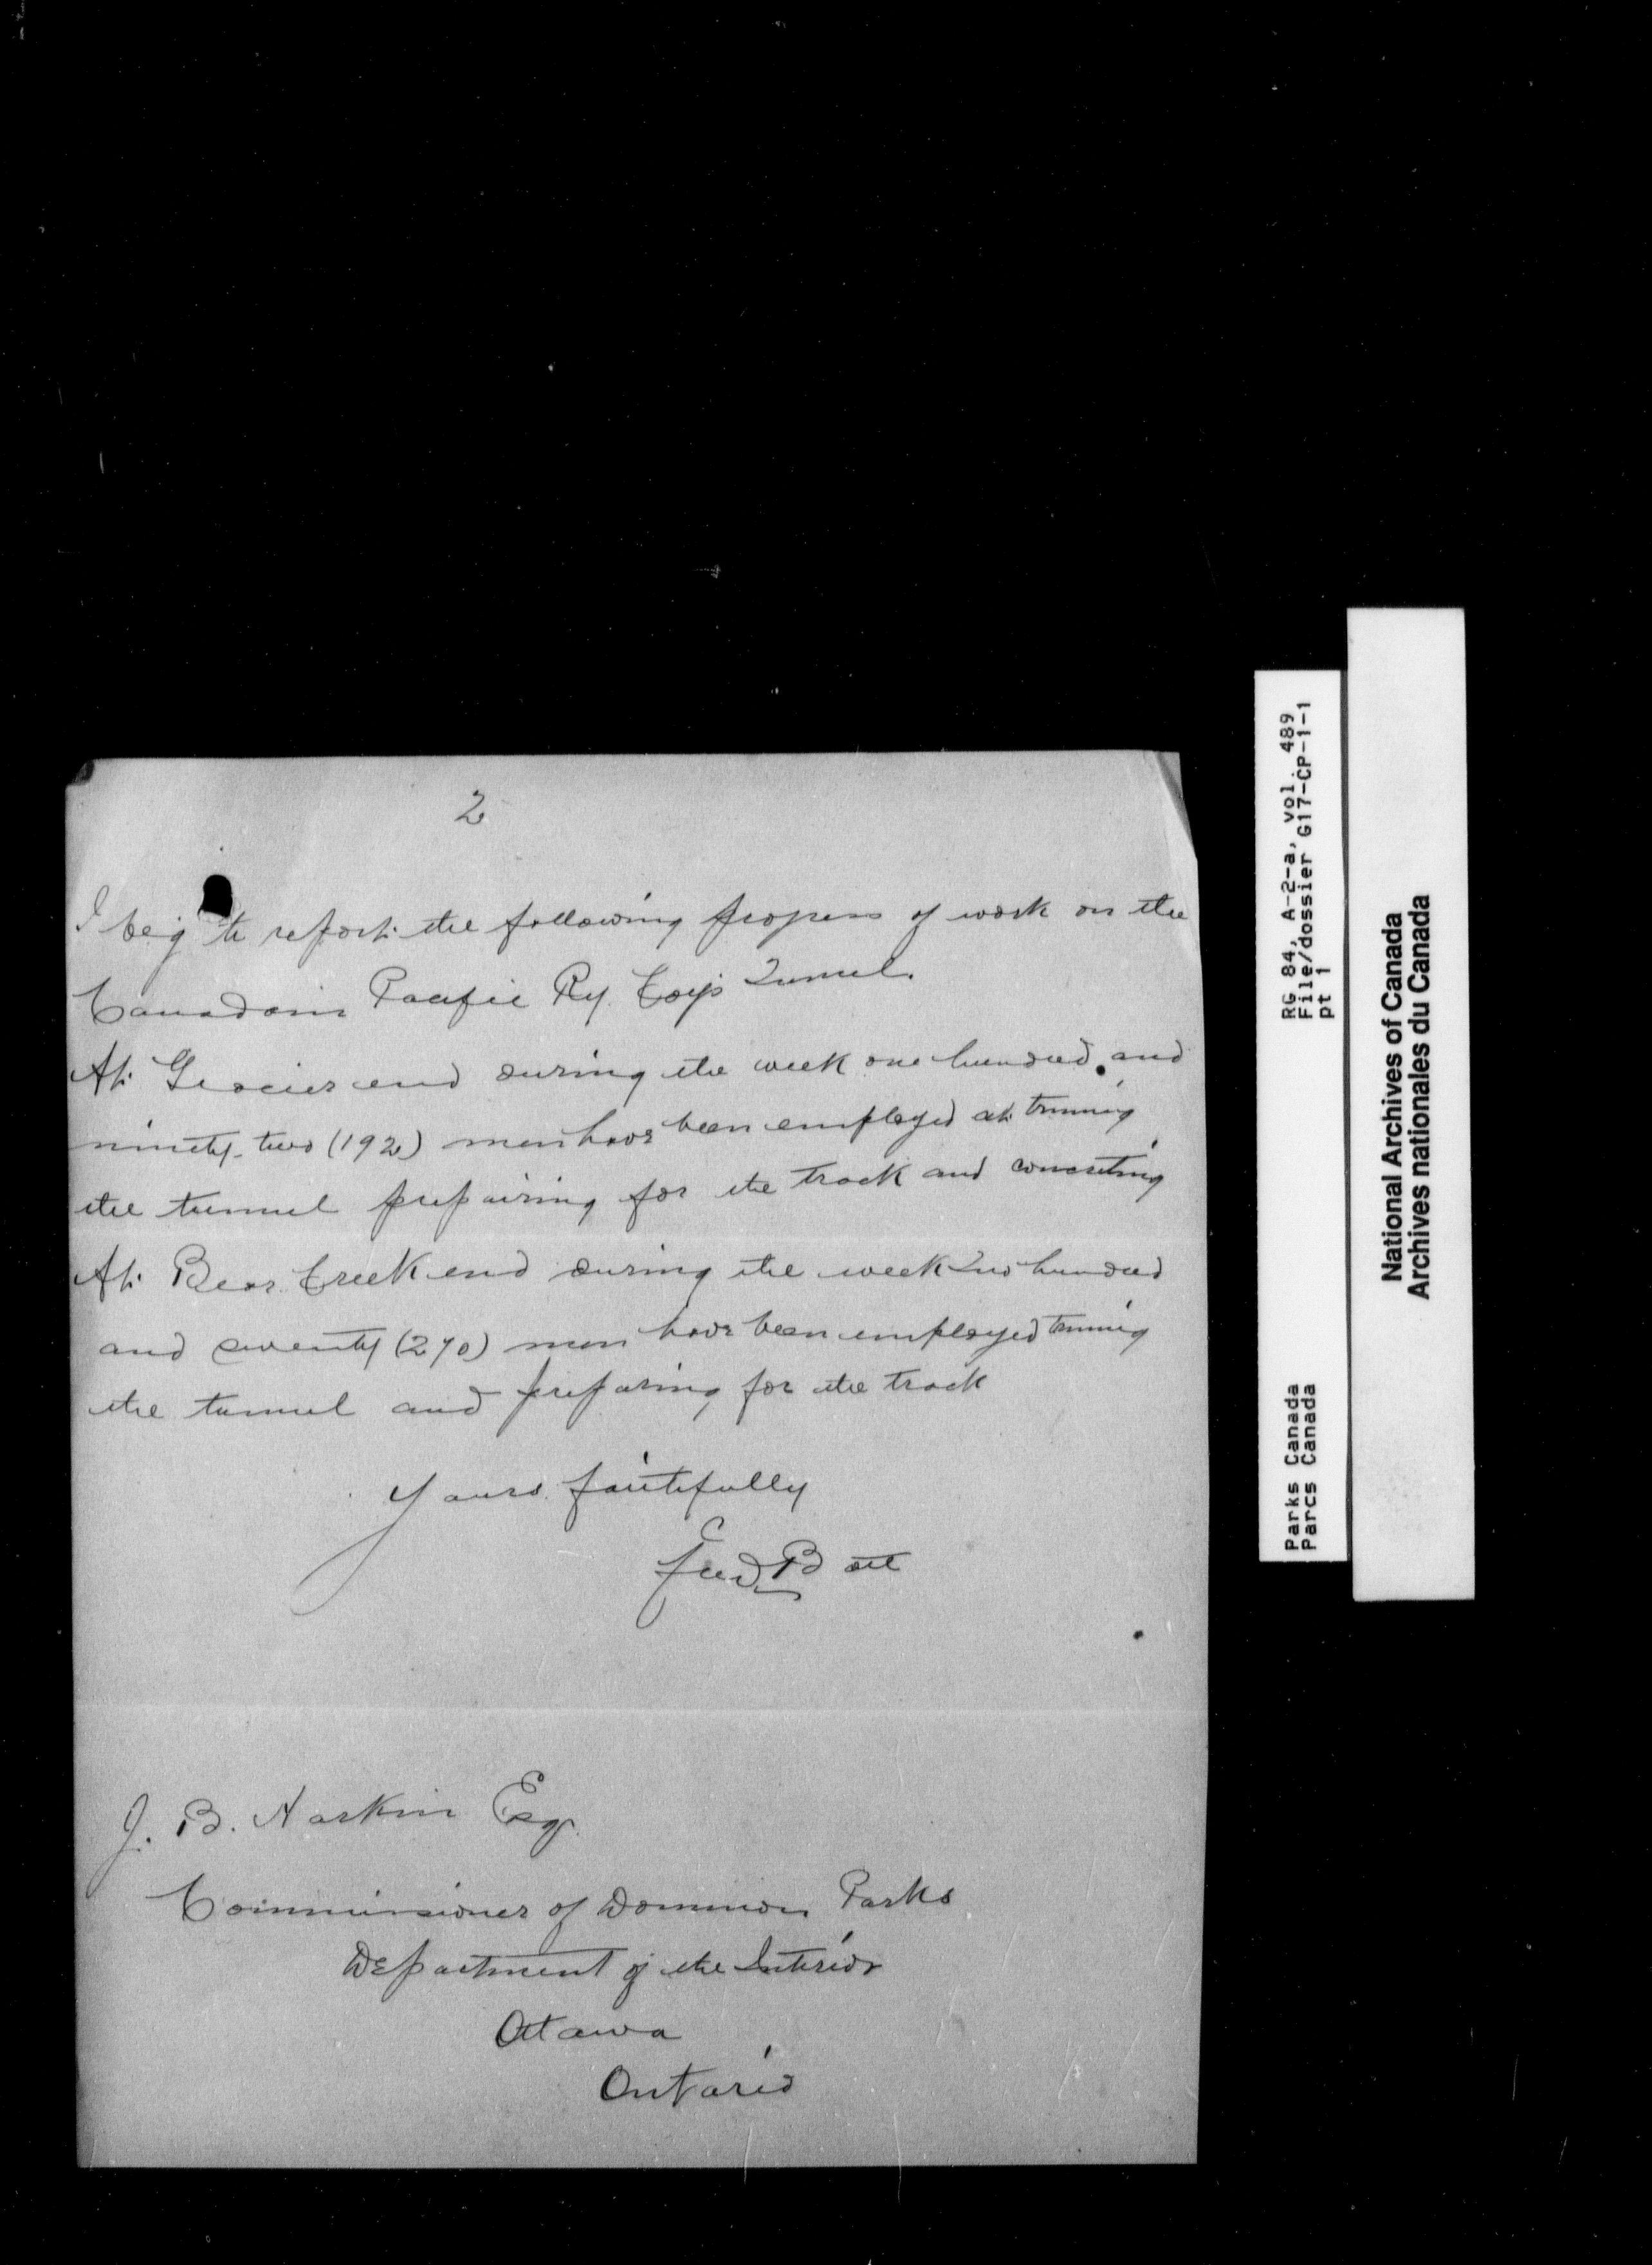 2
I beg to report the following progress of work on the
Canadain Pacific Ry. Coys Tunnel.
At Glacier end during the week one hundred and
ninety-two (192) men have been employed at triming
the tunnel prepairing for the track and concreting
At Bear Creek end during the week Two hundred
and seventy (270) men have been employed triming
the tunnel and preparing for the track
Yours faithfully
Fred Batt
J. B. Harkin Esq.
Commissioner of Dominion Parks
Department of the Interior
Ottawa
Ontario
Parks Canada RG 84, A-2-a, vol. 489
Parcs Canada File/dossier G17-CP-1-1
pt 1
National Archives of Canada
Archives nationales du Canada